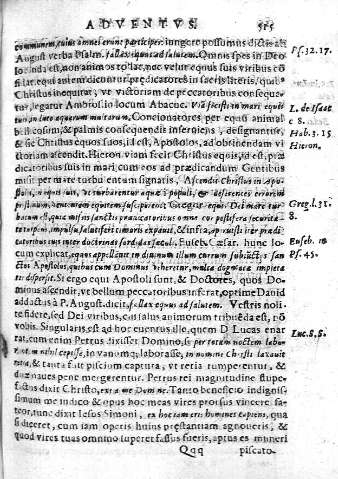 ADVENTVS.
515
communem, cuius omnes erunt participes: iungere possumus dicta ab
August verba Psalm. fallax equus ad salutem. Omnis spes in Deo
locanda est, non animos tollat, nec velut equus suis viribus
Ps. 32. 17.
sit. equi autem dicuntur prædicatores in sacris literis, quibus
Christus inequitat, vt victoriam de peccatoribus conseque-
tur, legatur Ambros. in locum Abacuc. Via fecisti in mari equis
tuis in luto aquarum multarum, Concionatores per equi animal
L. de Isaac
c 8.
Hab. 3. 15
& palmis consequendis inseruiens, designantur,
& sic Christus equos suos, id est, Apostolos, ad obtinendam vi
ctoriam ascendit. Hieron. viam fecit Christus equis, id est, præ
Hieron.
dicatoribus suis in mari, cum eos ad prædicandum Gentibus
misit per mare turbatum signatis, Ascendit Christus in Apo-
stolos, equos suos, vt turbarentur aquæ & populi, & desererent errorem
pristinum, Gregor. equos Dei mare tur-
Greg. l. 31.
8.
barunt, quia missis sanctis prædicatoribus omnis cor pestifera securita
te torpens, impulsu salutifero timoris expauit, & infra,
catoribus tuis inter doctrinas Euseb. Cæsar. hunc lo-
Euseb. in
Ps. 45.
cum explicat, equos appellauit in diuinum illum currum san
ctos Apostolos, quibus cum Dominus veheretur, multa dogmata impieta
tis disperset. Si ergo equi Apostoli sunt, & Doctores, quos Do-
minus ascendit, vt bellum peccatoribus inferat, optime Dauid
adductus à P. August. dicit, fallax equus ad salutem. Vestris noli-
te fidere, sed Dei viribus, cui salus animorum tribuenda est, nō
vobis. Singularis est ad hoc euentus ille, quem D. Lucas enar
rat, cum enim Petrus dixisset Domino, se per totam noctem labo-
Luc. 5. 5.
rantem nihil cepisse, in vanumq; laborasse, in nomine Christi laxauit
retia, & tanta fuit piscium captura, vt retia rumperentur, &
duæ naues pene mergerentur. Petrus rei magnitudine stupe-
factus dixit Christo, exi a me Domine. Tanto beneficio indignis-
simum me indico & opus hoc meas vires prorsus vincere fa-
teor, tunc dixit Iesus Simoni, ex hoc iam eris homines capiens, qua
si diceret, cum iam operis huius præstantiam agnoueris, &
quod vires tuas omnino superet fassus fueris, aptus es muneri
Qqq
piscato-